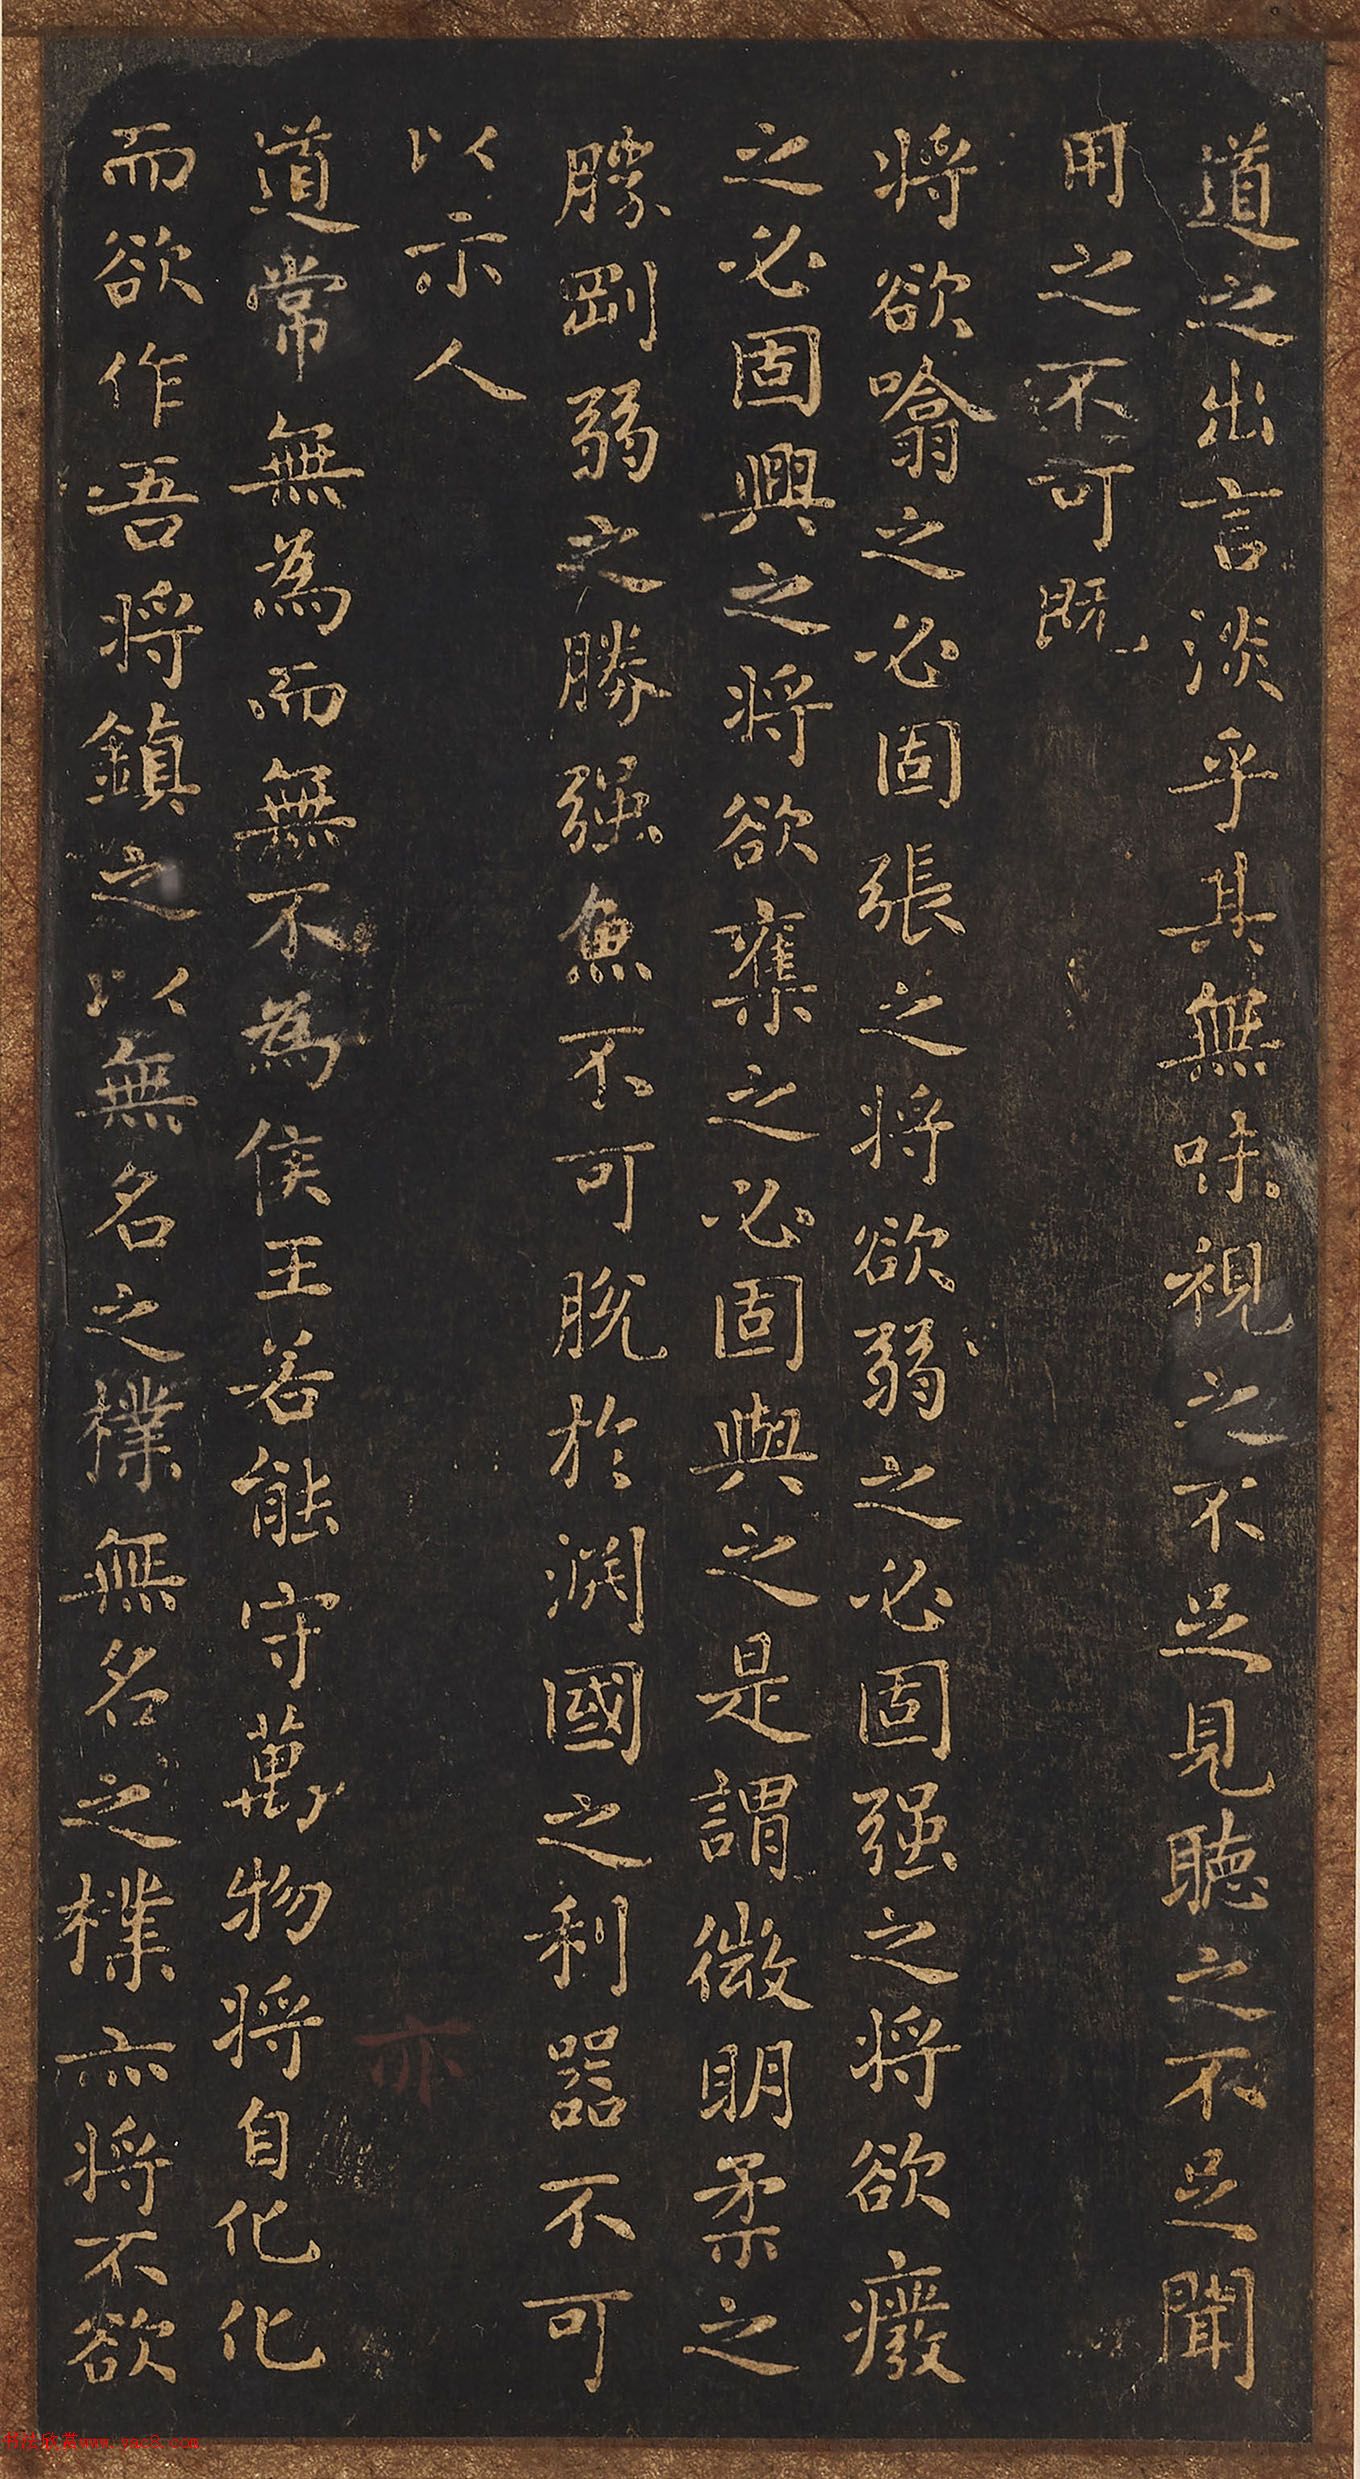 道之出言淡乎其無味視之不足見聽之不足聞
用之不可既
將欲噏之必固張之將欲弱之必固强之將欲癈
之必固興之將欲奪之必固與之是謂微明柔之
勝剛弱之勝强魚不可脫於渊國之利器不可
以示人
道常無為而無不為侯王若能守萬物將自化化
而欲作吾將鎮之以無名之樸無名之樸亦將不欲
亦
书法欣赏www.yac8.com